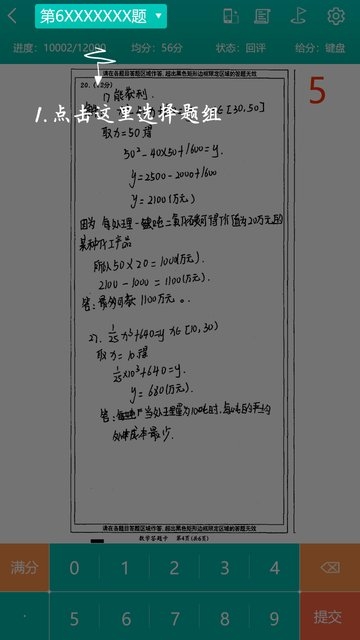 第6XXXXXXX题
进度：10002/12000 均分：56分 状态：回评 给分：键盘
请在各题目答题区域作答，超出黑色矩形边框限定区域的答题无效
20.(12分)
5
1.点击这里选择题组
能获利.
[30,50]
取x=50得
50²-40×50+1600=y.
y=2500-2000+1600
y=2100(万元)
因为 每处理一吨二氧化碳可得价值为20万元的
某种化工产品
所以50×20=1000(万元).
2100-1000=1100(万元).
答：最少亏损1100万元。
27. 1/25 x³+640=y x∈[10,30)
取x=10得
1/25×10³+640=y.
y=680(万元).
答：当处理量为10吨时，每吨的平均
处理成本最少.
请在各题目答题区域作答，超出黑色矩形边框限定区域的答题无效
数学答题卡 第4页(共6页)
满分 0 1 2 3 4
· 5 6 7 8 9 提交